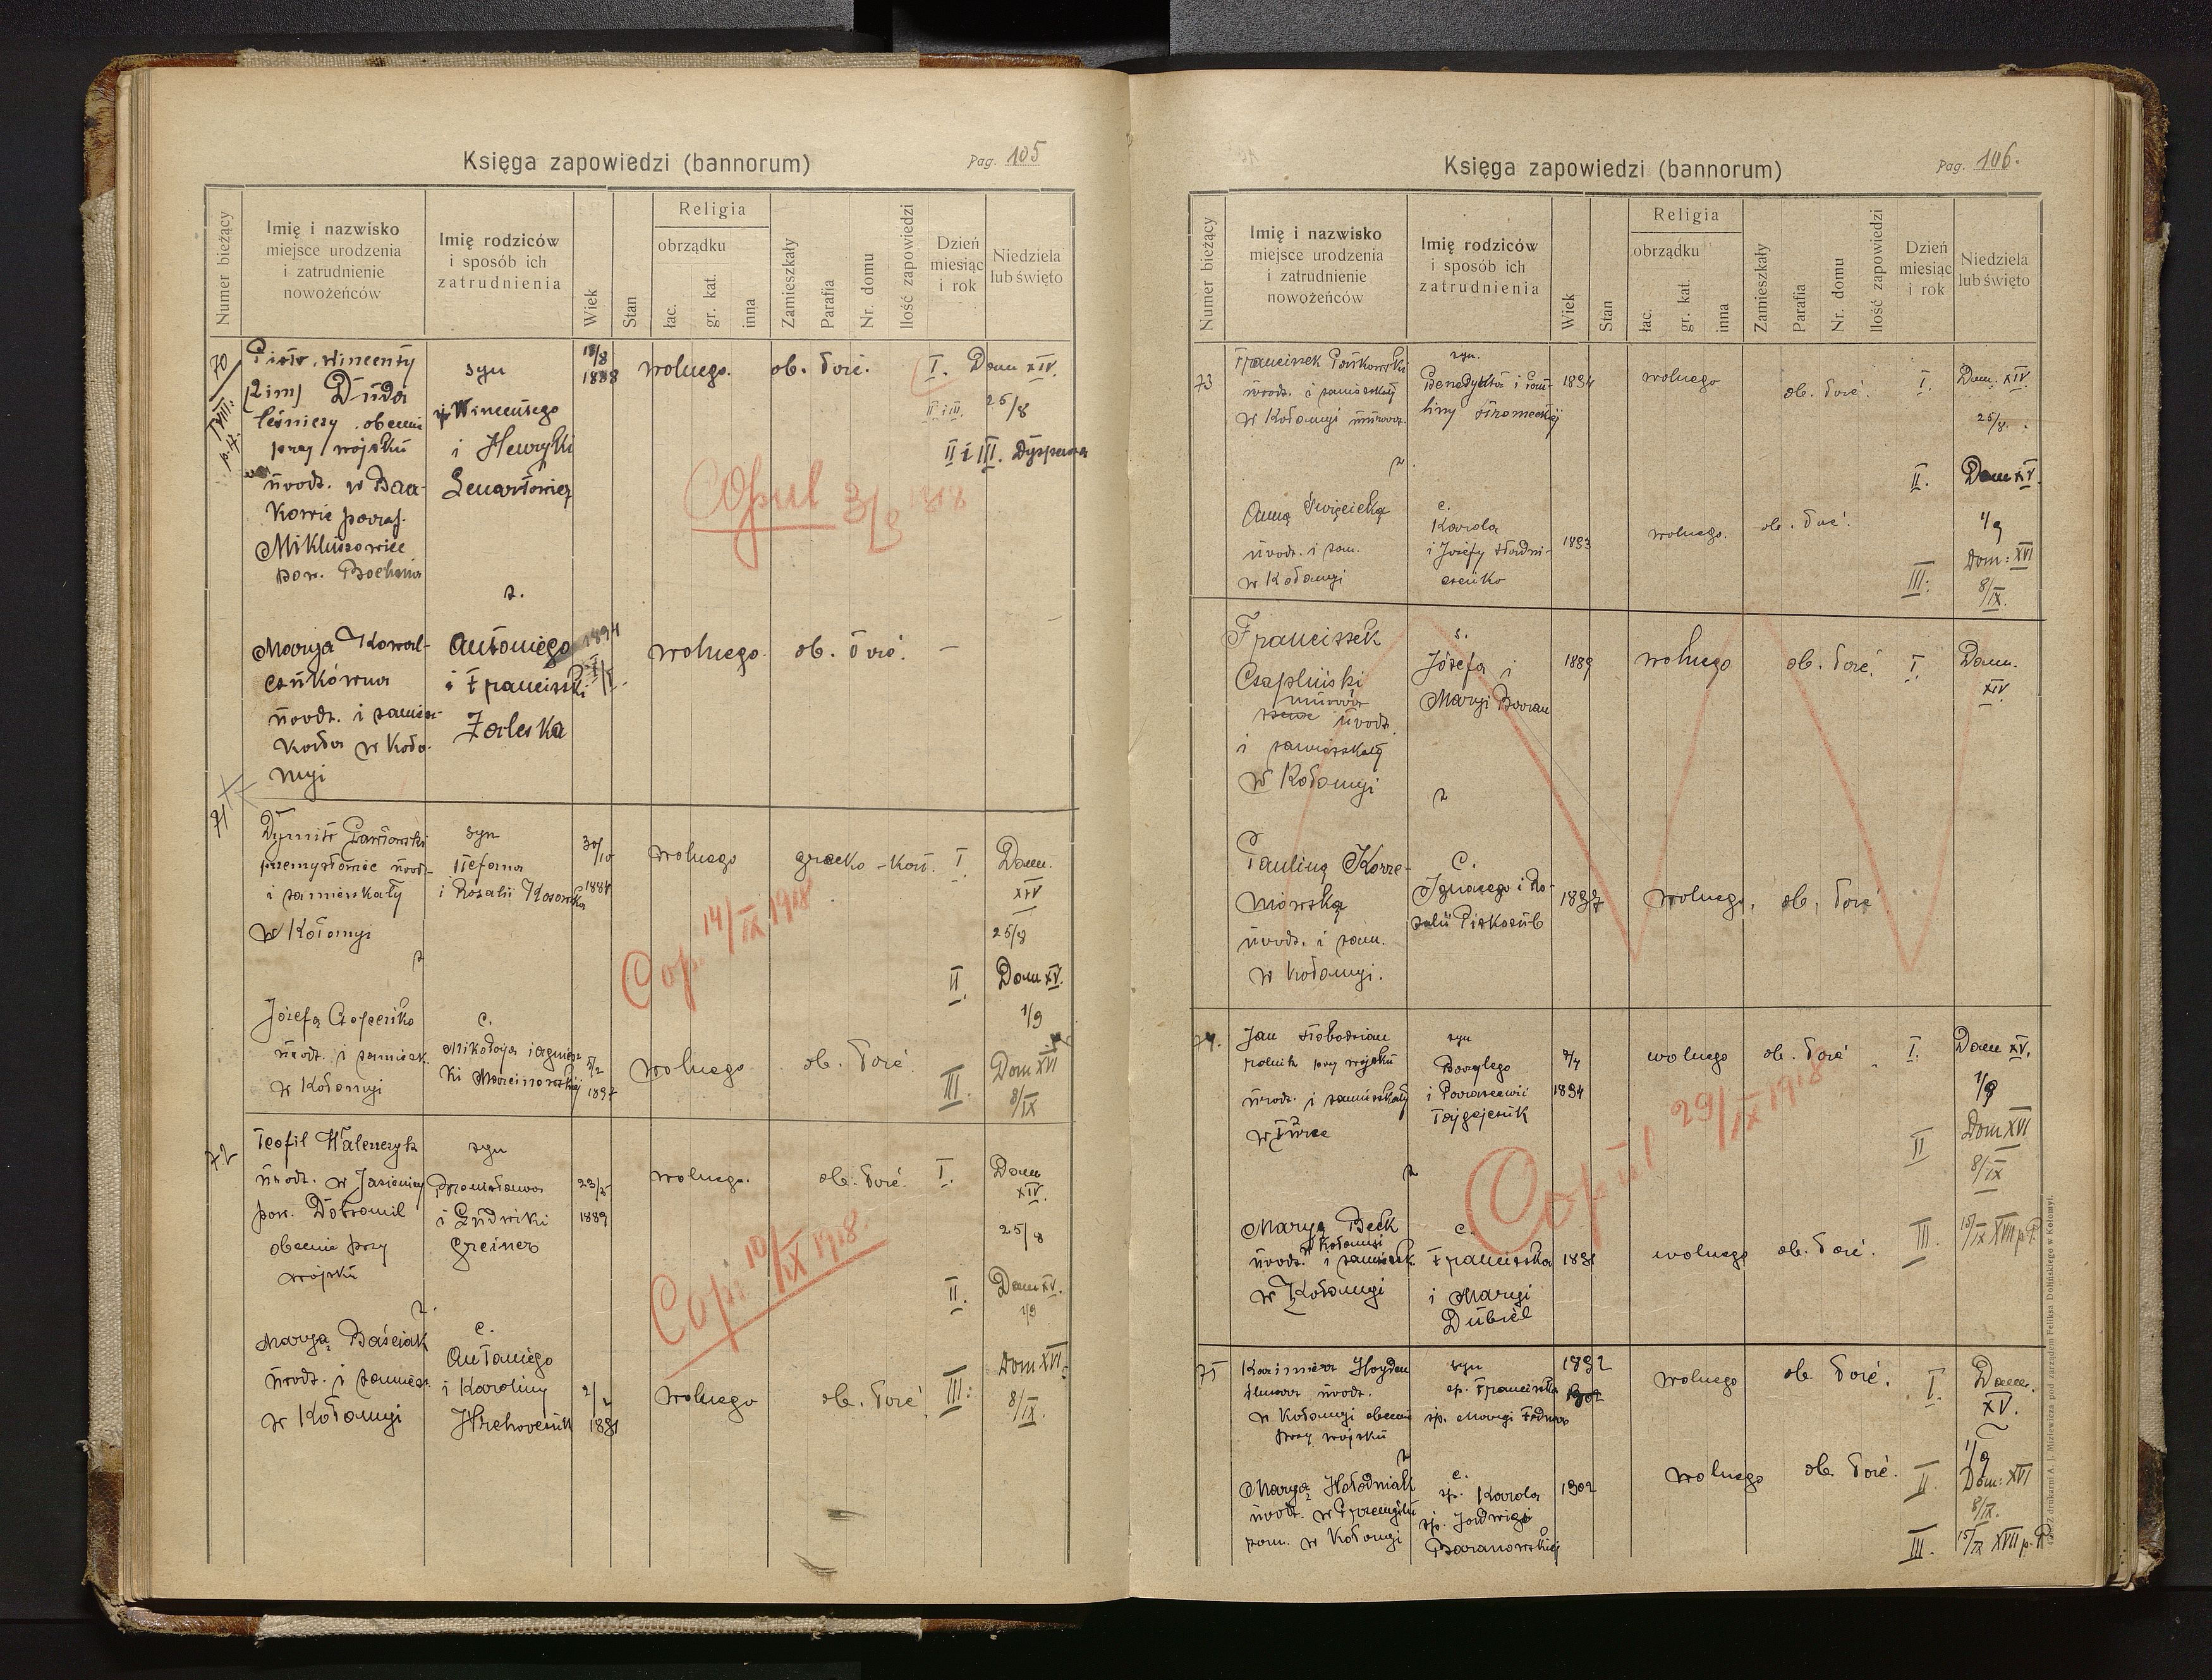 Księga zapowiedzi (bannorum)
Pag. 105
Numer bieżący
Imię i nazwisko
miejsce urodzenia
i zatrudnienie
nowożeńców
Imię rodziców
i sposób ich
zatrudnienia
Wiek
Stan
Religia
obrządku
łac.
gr. kat.
inna
Zamieszkały
Parafia
Nr. domu
Ilość zapowiedzi
Dzień
miesiąc
i rok
Niedziela
lub święto
70
Piotr, Wincenty
(2 im) Duda
leśniczy, obecnie
przy wojsku
urodz. w
paraf.
Mikluszowice
pow. Bochnia
syn
Wincentego
i Henryki
Lenartowicz
18/8
1888
wolnego.
ob. łać.
I. Dom XIV.
II i III. 25/8
II i III. Dyspensa
Copul 3/9 1918
z.
Marya Kowal-
czukówna
urodz. i zamiesz-
kała w Koło-
myi
Antoniego
i Franciszki
Zaleska
1894
wolnego.
ob. łać.
71
Dymitr Pawłowski
przemysłowiec urodz.
i zamieszkały
w Kołomyi
syn
Stefana
i Rozalii Kosowska
30/10
1884
wolnego
grecko-kat.
I. Dom.
XIV
25/8
Cop. 14/IX 1918
II. Dom XV.
1/9
z
Józefa Czopenko
urodz. i zamieszk.
w Kołomyi
c.
Mikołaja i Agniesz
ki Marcinowskiej
5/2
1897
wolnego
ob. łać
III. Dom XVI
8/IX
72
Teofil Walenczyk
urodz. w Jasienicy
pow. Dobromil
obecnie przy
wojsku
syn
Bronisława
i Ludwiki
Greiner
23/5
1889
wolnego.
ob. łać.
I. Dom
XIV.
25/8
Cop. 10/IX 1918.
II. Dom XV.
1/9
z.
Marya Baściak
urodz. i zamiesz.
w Kołomyi
c.
Antoniego
i Karoliny
Hrehoreiuk
2/2
1891
wolnego
ob. łać
III: Dom XVI:
8/IX.
Księga zapowiedzi (bannorum)
Pag. 106.
Numer bieżący
Imię i nazwisko
miejsce urodzenia
i zatrudnienie
nowożeńców
Imię rodziców
i sposób ich
zatrudnienia
Wiek
Stan
Religia
obrządku
łac.
gr. kat.
inna
Zamieszkały
Parafia
Nr. domu
Ilość zapowiedzi
Dzień
miesiąc
i rok
Niedziela
lub święto
73
Franciszek Pańkowski
urodz. i zamieszkały
w Kołomyi murarz.
syn.
Benedykta i Pau-
liny Stromeckiej
1894
wolnego
ob. łać.
I. Dom. XIV
25/8.
z.
II. Dom XV.
1/9
Anna Święcicka
urodz. i zam.
w Kołomyi
c.
Karola
i Józefy Hordni-
czeńko
1893
wolnego.
ob. łać.
III: Dom: XVI
8/IX.
Franciszek
Czapliński
murarz
urodz.
i zamieszkały
w Kołomyi
s.
Józefa i
Maryi Baran
1889
wolnego
ob. łać.
I. Dom.
XIV.
z
Pauliną Korze-
niowską
urodz. i zam.
w Kołomyi.
C.
Ignacego i Ro-
zalii Piskozub
1897
wolnego.
ob. łać
74.
Jan Słobodzian
rolnik przy wojsku
urodz. i zamieszkały
w Turce
syn
Bazylego
i Paraszewii
7/4
1894
wolnego
ob. łać
I. Dom XV.
1/9
II Dom XVI
8/IX
Copul 29/IX 1918
z
Marya Beck
w Kołomyi
urodz. i zamieszk.
w Kołomyi
c.
Franciszka
i Maryi
Dubiel
1891
wolnego
ob. łać.
III. 15/IX XVII p. P.
75
Kazimierz Hayden
ślusarz urodz.
w Kołomyi obecnie
przy wojsku
syn
śp. Franciszka
śp. Maryi
1892
wolnego
ob. łać.
I. Dom.
XV.
1/9
z
Marya Hołodniak
urodz. w Przemyślu
zam. w Kołomyi
c.
śp. Karola
śp. Jadwigi
Baranowskiej
1902
wolnego
ob. łać.
II. Dom: XVI
8/IX.
III. 15/IX XVII p. P.
Z drukarni A. J. Miziewicza pod zarządem Feliksa Dolińskiego w Kołomyi.